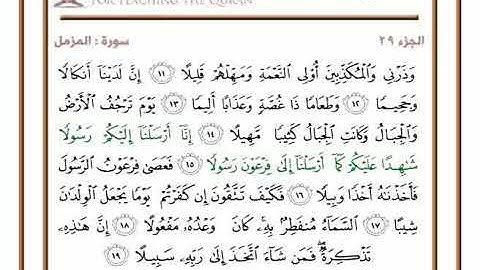 FOR TEACHING THE QURAN
الجزء ٢٩
سورة : المزمل
وَذَرْنِي وَالْمُكَذِّبِينَ أُولِي النَّعْمَةِ وَمَهِّلْهُمْ قَلِيلًا ١١ إِنَّ لَدَيْنَا أَنكَالًا
وَجَحِيمًا ١٢ وَطَعَامًا ذَا غُصَّةٍ وَعَذَابًا أَلِيمًا ١٣ يَوْمَ تَرْجُفُ الْأَرْضُ
وَالْجِبَالُ وَكَانَتِ الْجِبَالُ كَثِيبًا مَّهِيلًا ١٤ إِنَّا أَرْسَلْنَا إِلَيْكُمْ رَسُولًا
شَاهِدًا عَلَيْكُمْ كَمَا أَرْسَلْنَا إِلَىٰ فِرْعَوْنَ رَسُولًا ١٥ فَعَصَىٰ فِرْعَوْنُ الرَّسُولَ
فَأَخَذْنَاهُ أَخْذًا وَبِيلًا ١٦ فَكَيْفَ تَتَّقُونَ إِن كَفَرْتُمْ يَوْمًا يَجْعَلُ الْوِلْدَانَ
شِيبًا ١٧ السَّمَاءُ مُنفَطِرٌ بِهِ ۚ كَانَ وَعْدُهُ مَفْعُولًا ١٨ إِنَّ هَٰذِهِ
تَذْكِرَةٌ ۖ فَمَن شَاءَ اتَّخَذَ إِلَىٰ رَبِّهِ سَبِيلًا ١٩